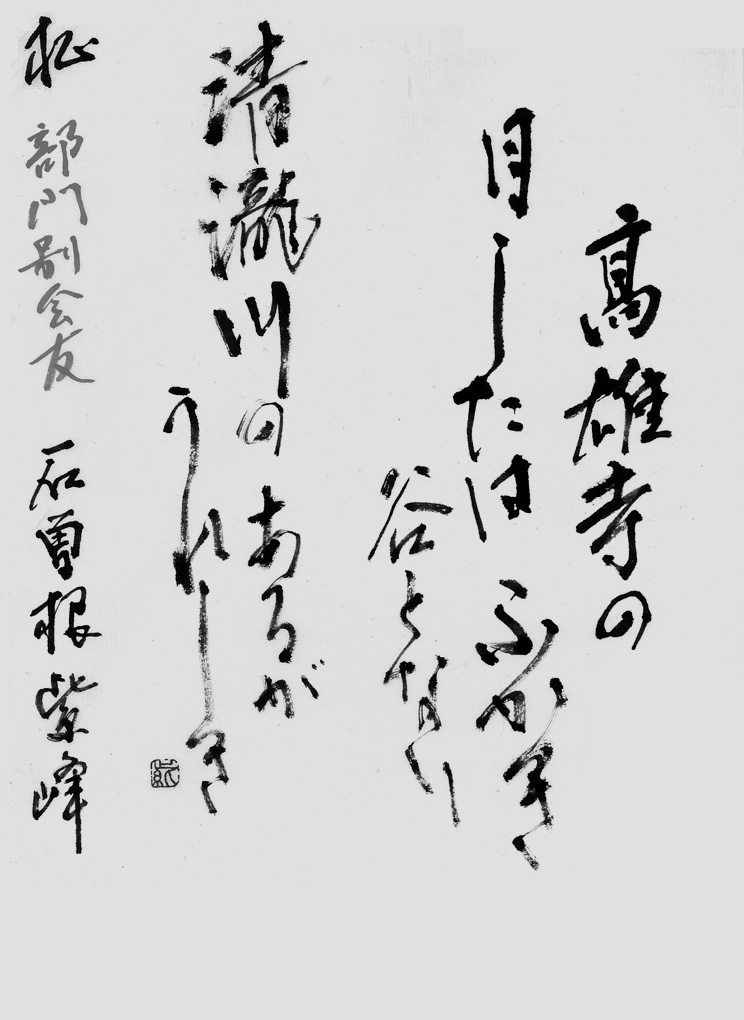 高雄寺の
目したは ふかき
谷となり
清瀧川のあるが
うれしき
部門別会友 石曽根紫峰